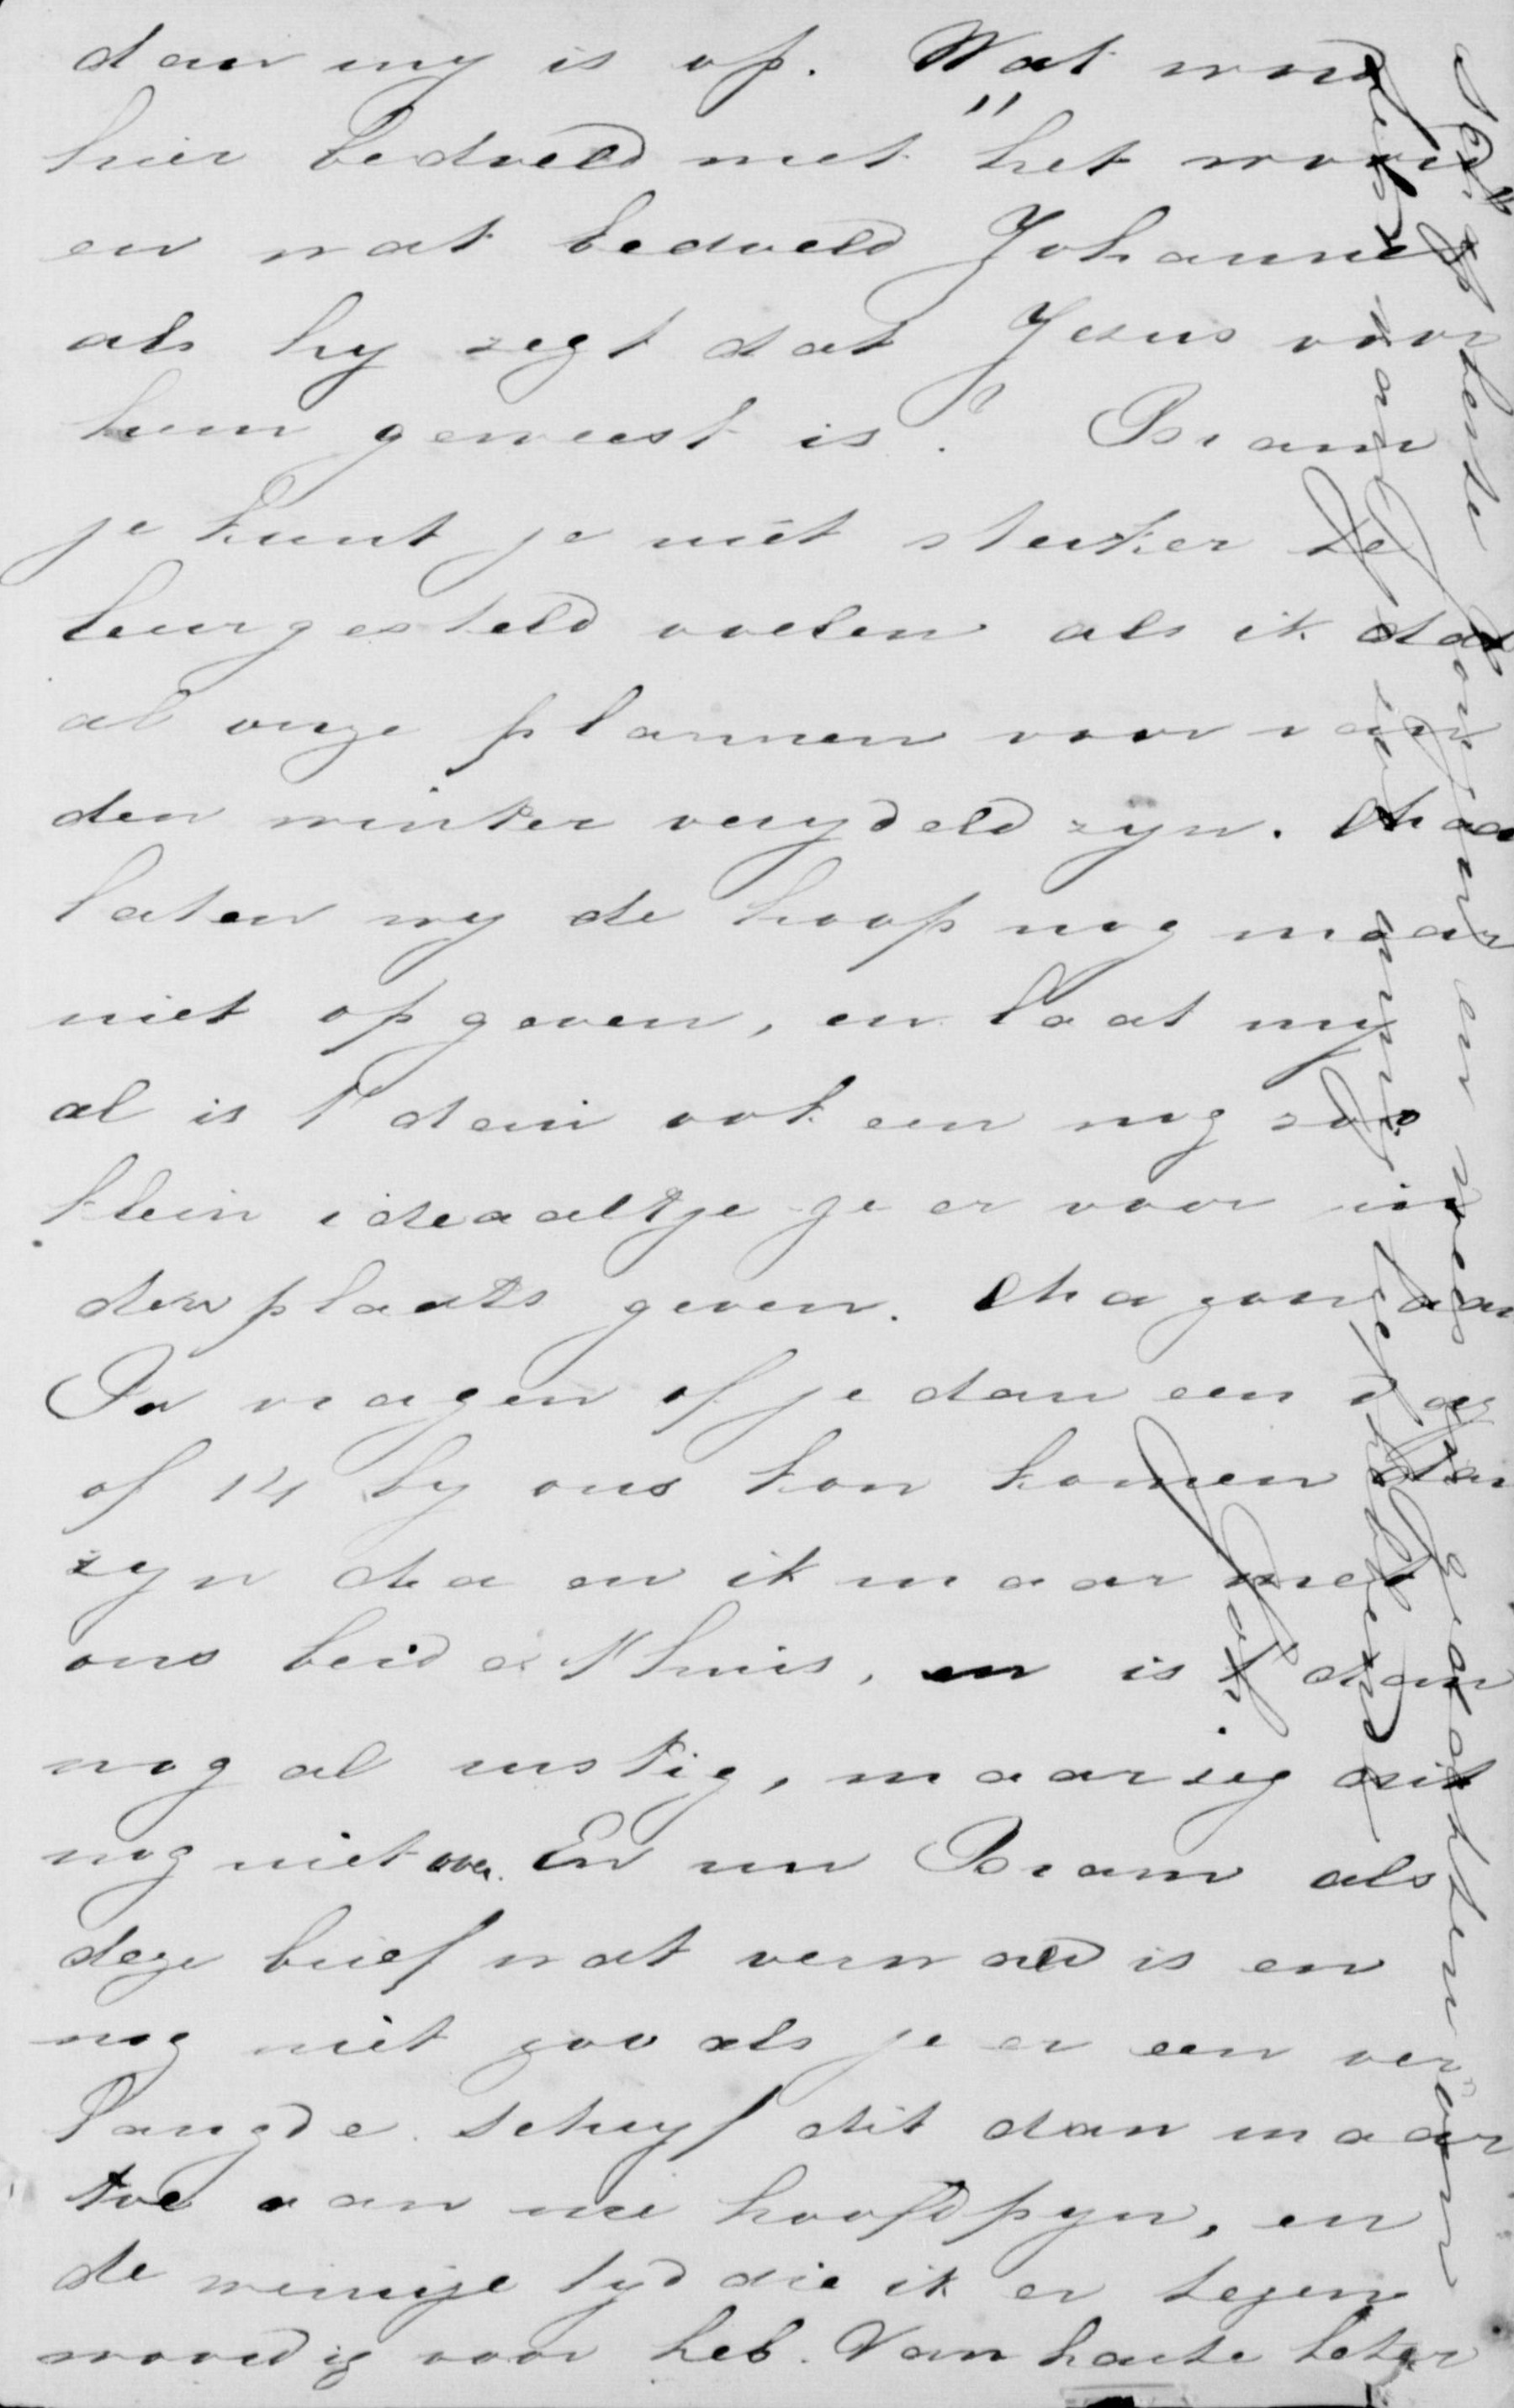 dan my is op. Wat word
hier bedoeld met "het woord"
en wat bedoeld Johannes
als hy zegt dat Jesus voor
hem geweest is? Bram
je kunt je niet sterker te
leurgesteld voelen als ik dat
al onze plannen voor van
den winter verydeld zyn. Maar
laten wy de hoop nog maar
niet opgeven, en laat my
al is 't dan ook een nog zoo
klein ideaaltje je er voor in
den plaats geven. Ma zou aan
Pa vragen of je dan een dag
of 14 by ons kon komen dan
zyn Ma en ik maar met
ons beide 't huis, en is 't dan
nog al rustig, maar zeg dit
nog niet over. En nu Bram als
deze brief wat verward is en
nog niet zoo als je er een ver
langde schryf dit dan maar
toe aan mn hoofdpyn, en
de weinige tyd die ik er tegen
woordig voor heb. Van harte beter
schap beste jongen en wees in gedachten van
gekust van je zoo innig liefhebbend